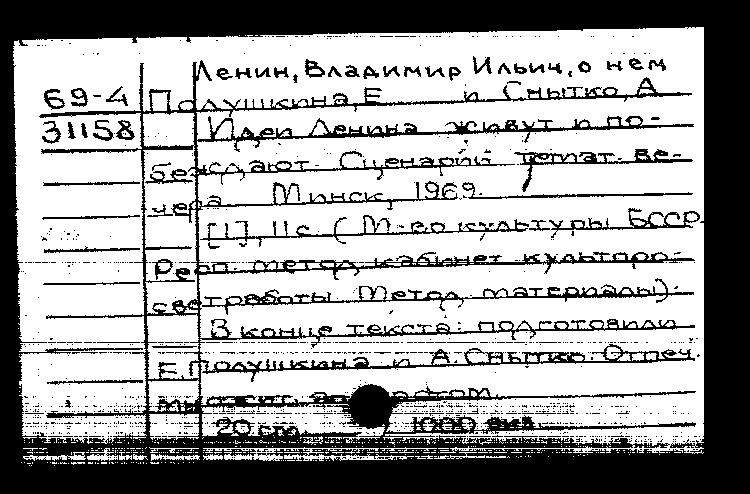 Ленин, Владимир Ильич, о нем
69-4 Полушкина, Е и Снытко, А
31158 Идеи Ленина живут и по-
беждают. Сценарий темат. ве-
чера. Минск, 1969.
[1], 11с. (М-во культуры БССР.
Респ. метод. кабинет культпро-
светработы. Метод. материалы).
В конце текста: подготовили
Е. Полушкина и А. Снытко. Отпеч.
20 cm. 1000 экз.